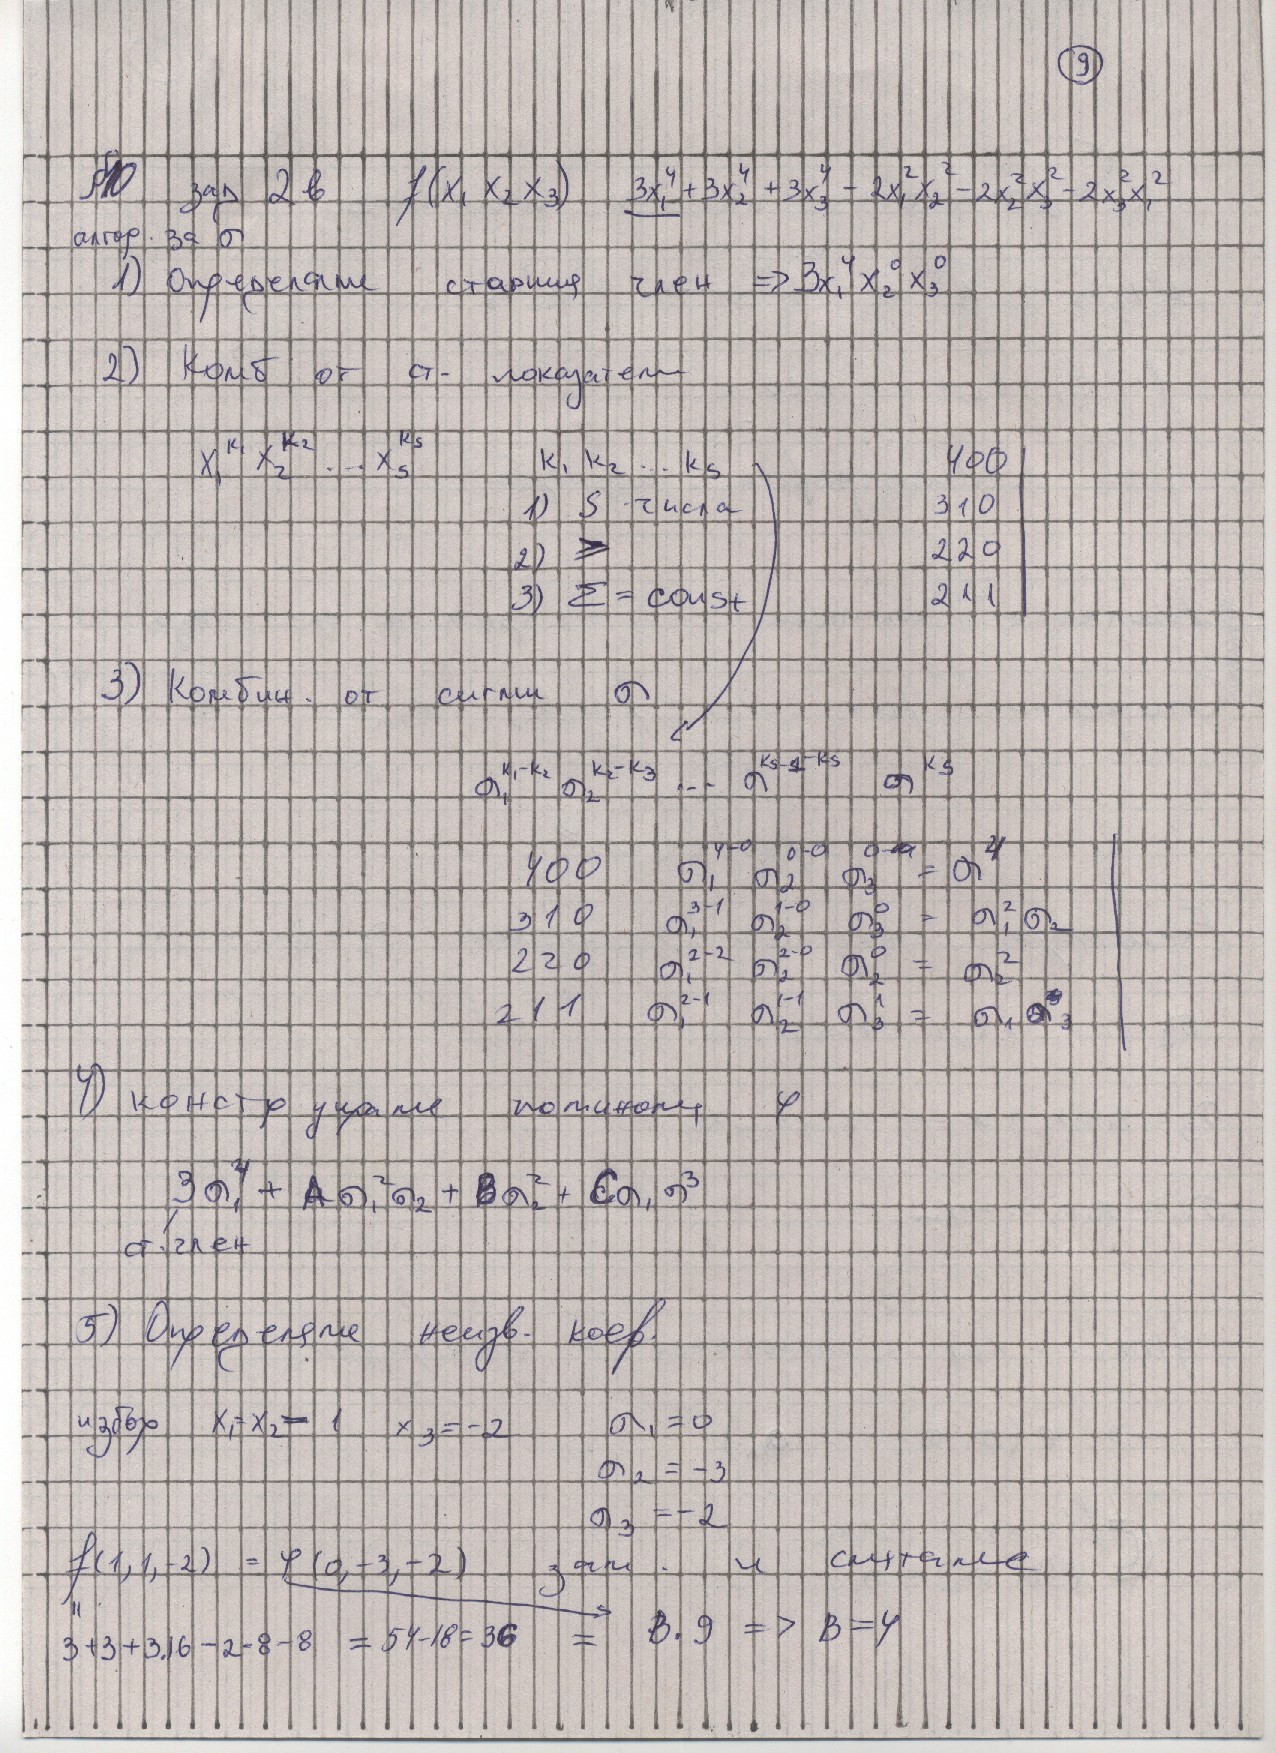 9
§10 зад 2 в f(x₁ x₂ x₃) 3x₁⁴ + 3x₂⁴ + 3x₃⁴ − 2x₁²x₂² − 2x₂²x₃² − 2x₃²x₁²
алгор. за σ
1) Определяме старшия член => 3x₁⁴ x₂⁰ x₃⁰
2) Комб от ст- показатели
x₁^k₁ x₂^k₂ ... x_s^k_s k₁ k₂ ... k_s 400
1) S числа 310
2) ≥ 220
3) Σ = const 211
3) Комбин. от сигми σ
σ₁^(k₁−k₂) σ₂^(k₂−k₃) ... σ^(k_(s−1)−k_s) σ^k_s
400 σ₁^(4−0) σ₂^(0−0) σ₃^(0−0) = σ⁴
310 σ₁^(3−1) σ₂^(1−0) σ₃⁰ = σ₁²σ₂
220 σ₁^(2−2) σ₂^(2−0) σ₂⁰ = σ₂²
211 σ₁^(2−1) σ₂^(1−1) σ₃¹ = σ₁σ₃
4) конструираме полинома φ
3σ₁⁴ + Aσ₁²σ₂ + Bσ₂² + Cσ₁σ³
ст. член
5) Определяме неизв. коеф.
избор x₁=x₂=1 x₃=−2 σ₁=0
σ₂ = −3
σ₃ = −2
f(1,1,−2) = φ(0,−3,−2) зам. и смятаме
"
3+3+3.16−2−8−8 = 54−18=36 = B.9 => B=4